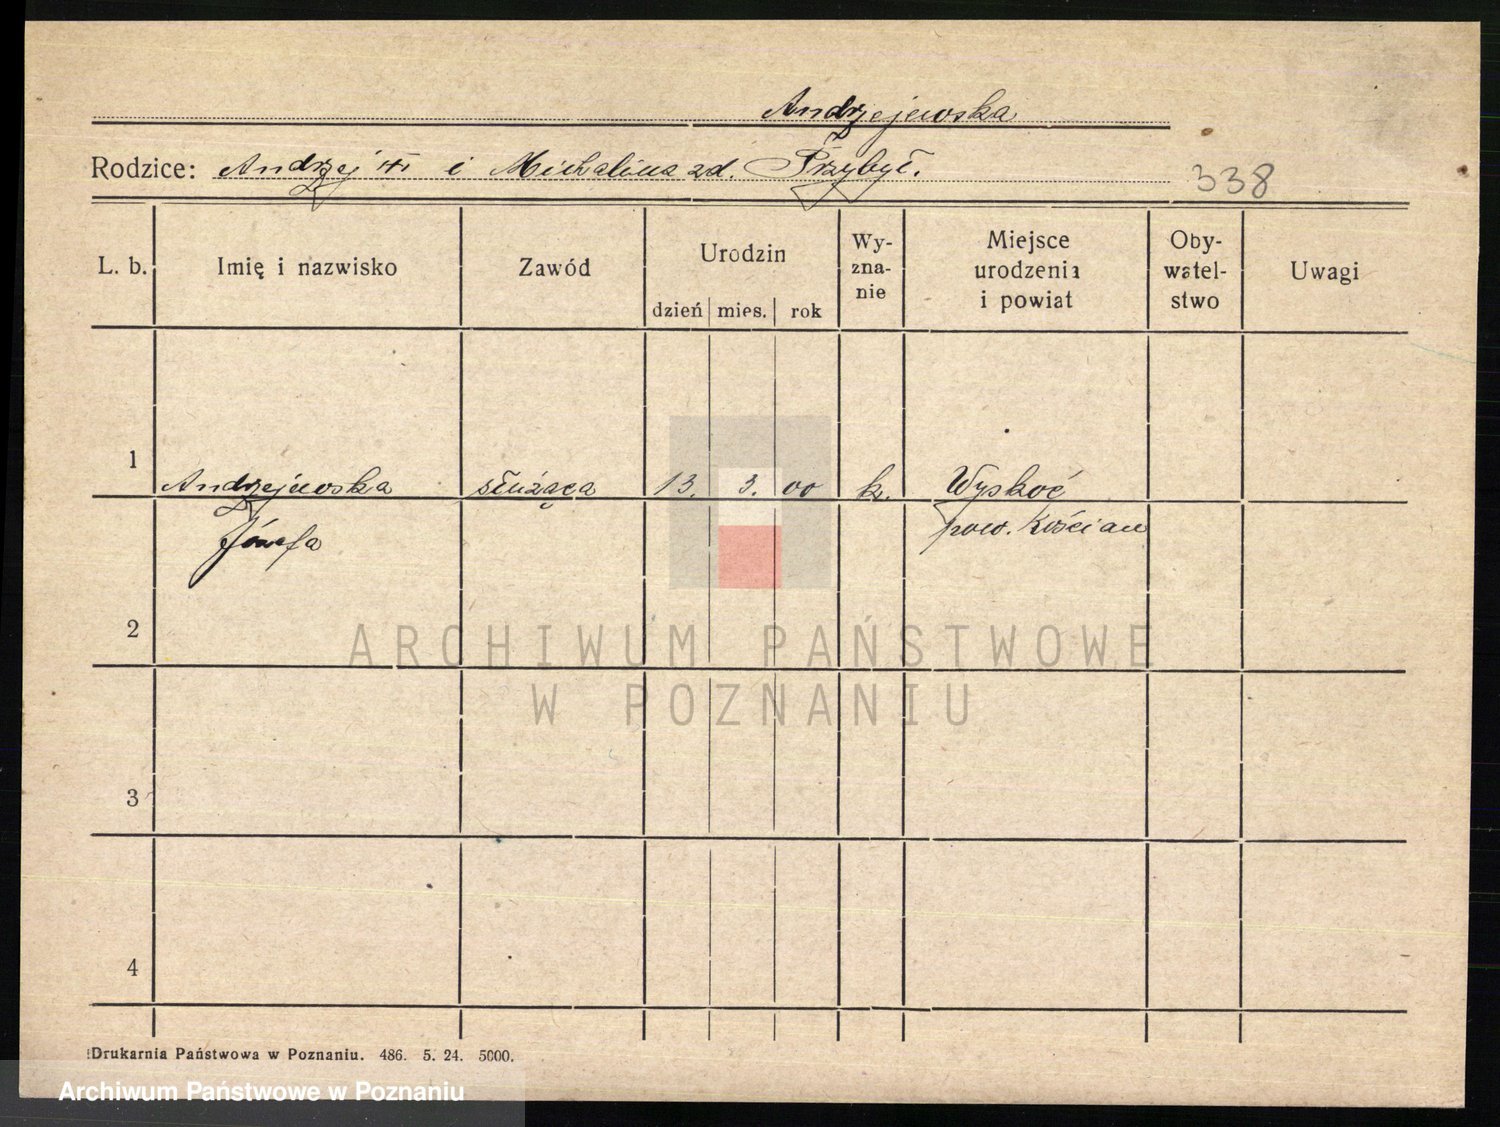 Andrzejewska
Rodzice: Andrzej i Michalina zd. Przybył.
338
L. b. Imię i nazwisko Zawód Urodzin dzień mies. rok Wy-zna-nie Miejsce urodzenia i powiat Oby-watel-stwo Uwagi
1 Andrzejewska służąca 13. 3. 00 k. Wyskoć
Józefa pow. Kościan
2
ARCHIWUM PAŃSTWOWE
W POZNANIU
3
4
Drukarnia Państwowa w Poznaniu. 486. 5. 24. 5000.
Archiwum Państwowe w Poznaniu